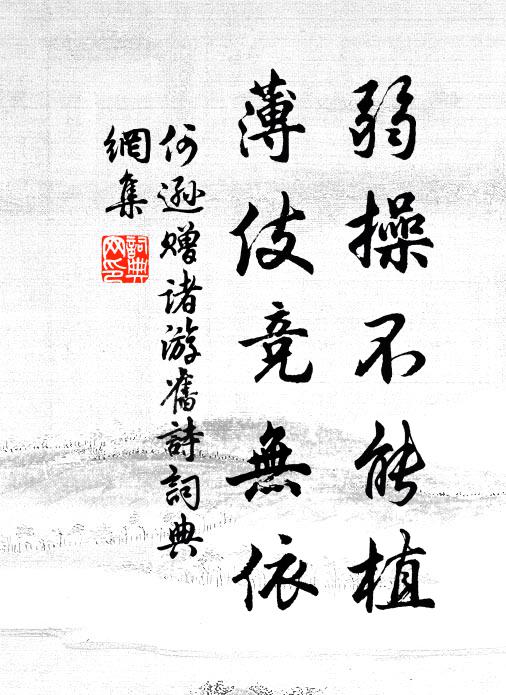 弱操不能植
薄伎竟無依
何遜贈諸游舊詩詞典
網集
詞典
网印